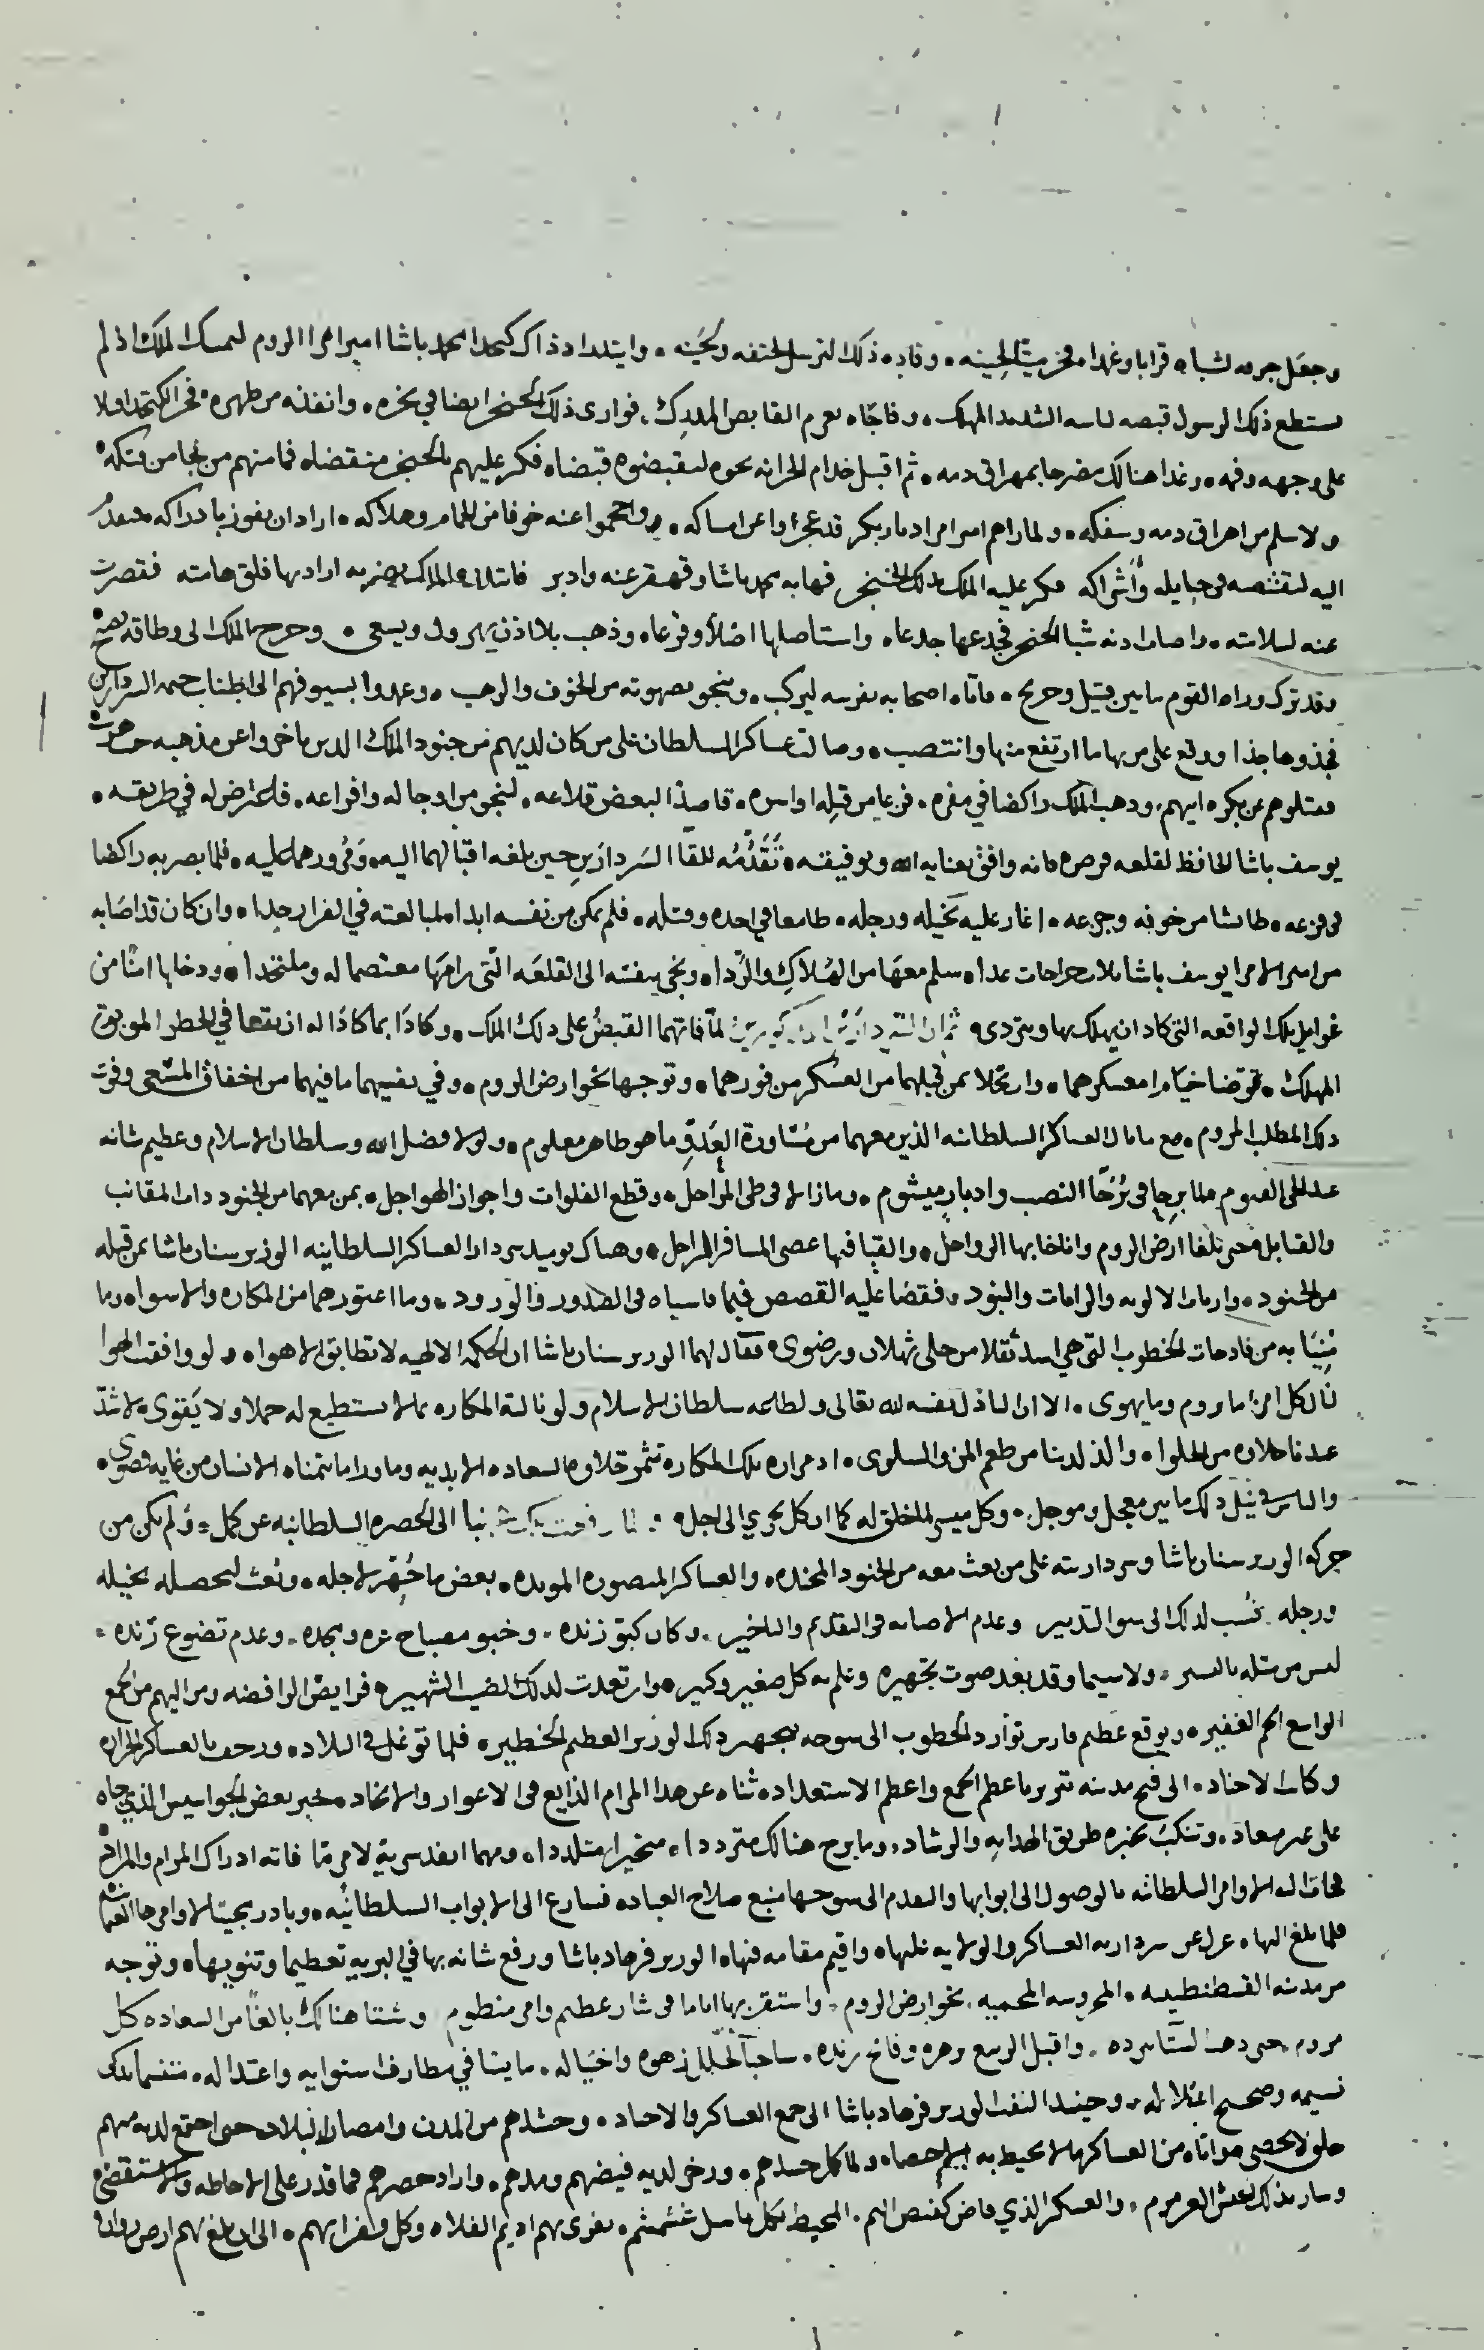 وجعل جرمه لشباه قرابا وغمدا فخر ميتا لحينه وقاده ذلك لترسل لحتفه وحينه وابتدر اذ ذاك كتخدا محمد باشا امير امرا الروم لمسك الملك اذ لم
يستطع ذلك الرسول قبضه لباسه الشديد المهلك وفاجاه بعزم القابض المدرك فوارى ذلك الخنجر ايضا في نحره وانفذه من ظهره فخر الكتخدا
على وجهه وفمه وغدا هنالك مضرجا بمهراق دمه ثم اقبل خدام الخزانه نحوه ليقبضوه قبضا فكر عليهم بالخنجر منقضا فما منهم من نجا من فتكه
ولا سلم من اهراق دمه وسفكه ولما راهم امير امرا ديار بكر قد عجزوا عن امساكه واحجموا عنه خوفا من الحمام وهلاكه اراد ان يفوز بادراكه
اليه ليقتنصه في حبايله واشراكه فكر عليه الملك بذلك الخنجر فهابه محمد باشا وقهقر عنه وادبر الملك بضربه اراد بها فلق هامته فقصرت
عنه لسلامته واصاب اذنه شبا الخنجر فجدعها جدعا واستاصلها اصلا وفرعا وذهب بلا اذن يهرول ويسعى وخرج الملك الى وطاقه
وقد ترك وراه القوم ما بين قتيل وجريح فاتاه اصحابه بفرسه ليركب وينجو بصهوته من الخوف والرهب وعمدوا بسيوفهم الى اطناب خيمه السردارين
فجذوها جذا ووقع على من بها ما ارتفع منها وانتصب وصالت عساكر السلطان على من كان لديهم من جنود الملك الذين تاخروا عن مذهبه
فقتلوهم عن بكره ابيهم وذهب الملك راكضا في مفره قاصدا لبعض قلاعه لينجو من اوجاله وافزاعه فاعترض له في طريقه
يوسف باشا الحافظ لقلعه قرص فانه وافق بعنايه الله وتوفيقه تقدمه للقا السردارين حين بلغه اقبالهما اليه وورودهما عليه فلما بصر به راكضا
في فزعه طائشا من خوفه وجزعه اغار عليه بخيله ورجله طامعا في اخذه وقتله فلم يمكن من نفسه ابدا لمبالغته في الفرار جدا وان كان قد اصابه
من امير الامرا يوسف باشا ثلاث جراحات عدا سلم معها من الهلاك والردا ونجى بنفسه الى القلعه التي رامها معتصما له وملتحدا ودخلها امنا من
غوايل تلك الواقعه التي كاد ان يهلك بها ويتردى ثم ان لما فاتهما القبض على ذلك الملك وكادا بما كادا له ان يقعا في الخطر الموبق
المهلك قوضا خيام معسكرهما وارتحلا بمن قبلهما من العسكر من فورهما وتوجها نحو ارض الروم وفي نفسيهما ما فيهما من اخفاق المسعى وفوت
ذلك المطلب المروم مع ما نال العساكر السلطانيه الذين معهما من مساورة العدو ما هو ظاهر معلوم ولولا فضل الله وسلطان الاسلام وعظيم شانه
عند الحي القيوم لما برحا في برحا النصب وادبار ميشوم وما زالا في طي المراحل وقطع الفلوات واجواز الهواجل بمن معهما من الجنود ذات المقانب
والقنابل حتى بلغا ارض الروم واناخا بها الرواحل والقيا فيها عصى المسافر المراحل وهناك يوميذ سردار العساكر السلطانيه الوزير سنان باشا بمن قبله
من الجنود وارباب الالويه والرايات والبنود فقصا عليه القصص فيما قاسياه في الصدور والورود وما اعتورهما من المكاره والاسوا وما
منيا به من فادحات الخطوب التي هي اشد ثقلا من جبلى ثهلان ورضوى فقال لهما الوزير سنان باشا ان الحكمه الالهيه لا تطابق الاهوا ولو وافقت الهوا
نال كل امرئ ما يروم وما يهوى الا ان الباذل نفسه لله تعالى ولطاعه سلطان الاسلام ولو نالته المكاره بما لا يستطيع له حملا ولا يقوى لا شد
عندنا حلاوه من الحلوا والذ لدينا من طعم المن والسلوى اذ مراره تلك المكاره تثمر حلاوه السعاده الابديه وما ورا ما يتمناه الانسان من غايه قصوى
والناس في نيل ذلك ما بين معجل وموجل وكل ميسر لما خلق له كما ان كل يجري الى اجل ولما رفعت تلك الانبا الى الحضره السلطانيه عن كمل ولم يكن من
حركه الوزير سنان باشا وسرداريته على من بعث معه من الجنود المجنده والعساكر المنصوره المويده بعض ما جهز لاجله وبعث لتحصيله بخيله
ورجله نسب لذلك الى سو التدبير وعدم الاصابه في التقديم والتاخير وكان كبو زنده وخبو مصباح عزه ومجده وعدم تضوع رنده
ليس من مثله باليسير ولا سيما وقد بعد صوت تجهيره وعلم به كل صغير وكبير وارتعدت لذلك الصيت الشهير فرايض الرافضه ومن اليهم من الجمع
الواسع الجم الغفير وتوقع عظيم فارس توارد الخطوب الى سوحه بتجهير ذلك الوزير العظيم الخطير فلما توغل في البلاد وزحف بالعساكر الجراره
وكتاب الاجناد الى فتح مدينه تبريز باعظم الجمع واعظم الاستعداد ثناه عن هذا المرام الذايع في الاغوار والانجاد خبر بعض الجواسيس الذي جاه
على غير ميعاد وتنكب بخبره طريق الهدايه والرشاد وما برح هنالك مترددا متحيرا متلددا ومهما انفد سرية لامر ما فاته ادراك المرام والمراد
فجات اليه الاوامر السلطانيه بالوصول الى ابوابها والتقدم الى سوحها منبع صلاح العباد فسارع الى الابواب السلطانيه وبادر مجيبا لاوامرها
فلما بلغ اليها عزل عن سرداريه العساكر والولايه عليها واقيم مقامه فيها الوزير فرهاد باشا ورفع شانه بها في البريه تعظيما وتنويها وتوجه
من مدينه القسطنطينيه المحروسه المحميه نحو ارض الروم واستقر بها اياما في شان عظيم وامر منظوم وشتا هنالك بالغا من السعاده كل
مروم حتى ذهب الشتا ببرده واقبل الربيع بزهره وفائح رنده ساحبا لحلل زهوه واختياله مايسا في مطارف استوايه واعتداله متنفسا بذكى
نسيمه وصحيح اعتلاله وحينيذ التفت الوزير فرهاد باشا الى جمع العساكر والاجناد وحشدهم من المدن وامصار البلاد حتى اجتمع لديه منهم
خلق لا يحصى مواتاه من العساكر ما لا يحيط به احصا ولما كمل حشدهم وزخر لديه فيضهم ومدهم واراد حصرهم فما قدر على الاحاطه والاستقصا
وسار بذلك الجيش العرمرم والعسكر الذي فاض كفيض اليم المحيط بكل باسل غشمشم يفرى بهم اديم الفلاه وكل قفر ابهم الى ان بلغ بهم ارض